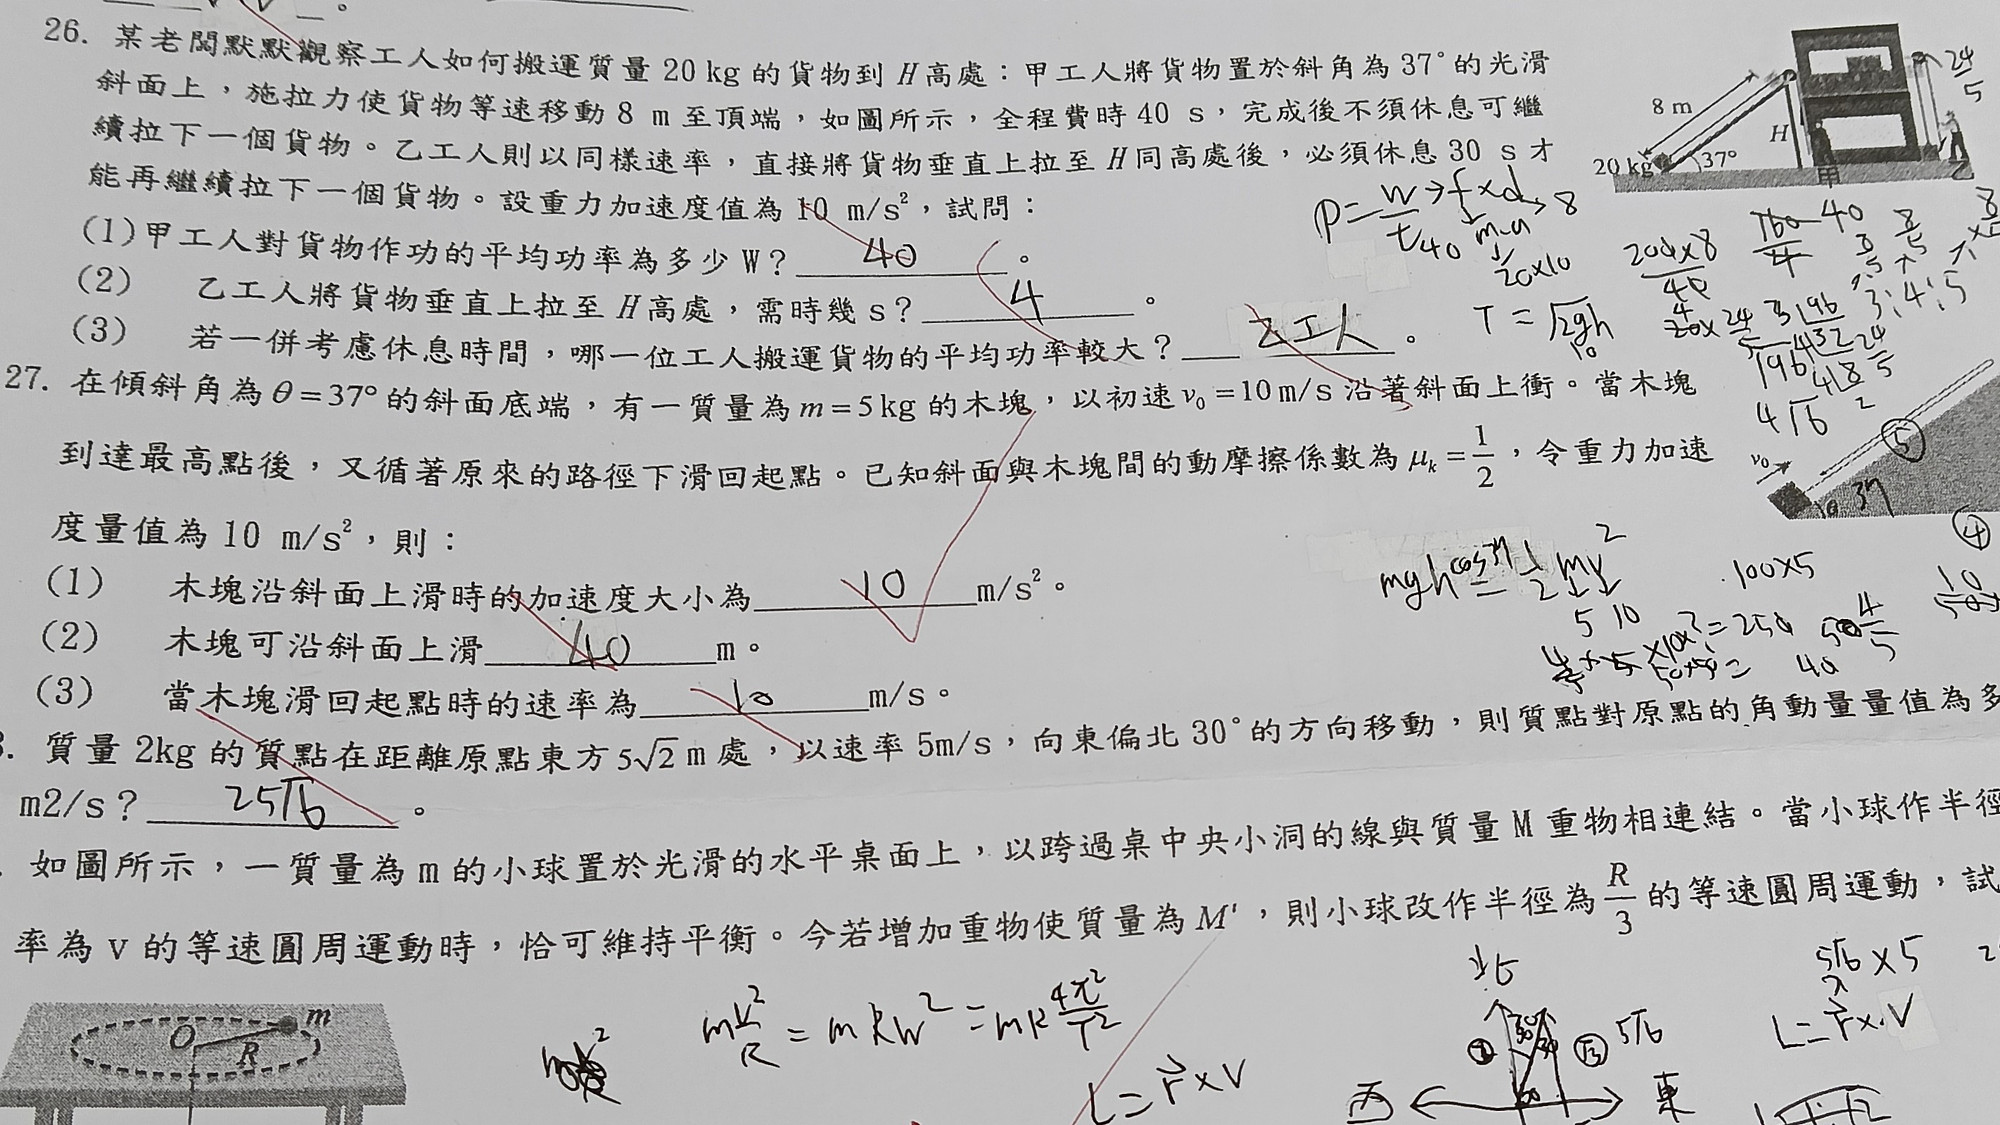 26. 某老闆默默觀察工人如何搬運質量 20 kg 的貨物到 H 高處：甲工人將貨物置於斜角為 37° 的光滑
斜面上，施拉力使貨物等速移動 8 m 至頂端，如圖所示，全程費時 40 s，完成後不須休息可繼
續拉下一個貨物。乙工人則以同樣速率，直接將貨物垂直上拉至 H 同高處後，必須休息 30 s 才
能再繼續拉下一個貨物。設重力加速度值為 10 m/s²，試問：
(1)甲工人對貨物作功的平均功率為多少 W？ 40 。
(2) 乙工人將貨物垂直上拉至 H 高處，需時幾 s？ 4 。
(3) 若一併考慮休息時間，哪一位工人搬運貨物的平均功率較大？ 乙工人 。
8 m
H
20 kg
37°
甲
24/5
P = W/t → f×d → 8
40
m·a
20×10
200×8/40
160/4
40
T = √2gh
10
3:4:5
27. 在傾斜角為 θ = 37° 的斜面底端，有一質量為 m = 5 kg 的木塊，以初速 v₀ = 10 m/s 沿著斜面上衝。當木塊
到達最高點後，又循著原來的路徑下滑回起點。已知斜面與木塊間的動摩擦係數為 μₖ = 1/2，令重力加速
度量值為 10 m/s²，則：
(1) 木塊沿斜面上滑時的加速度大小為 10 m/s²。
(2) 木塊可沿斜面上滑 40 m。
(3) 當木塊滑回起點時的速率為 10 m/s。
v₀
θ 37
⑤
④
mgh cos37 = 1/2 mv²
5 10
100×5
40
. 質量 2kg 的質點在距離原點東方 5√2 m 處，以速率 5m/s，向東偏北 30° 的方向移動，則質點對原點的角動量量值為多
m2/s？ 25√6 。
. 如圖所示，一質量為 m 的小球置於光滑的水平桌面上，以跨過桌中央小洞的線與質量 M 重物相連結。當小球作半徑
率為 v 的等速圓周運動時，恰可維持平衡。今若增加重物使質量為 M'，則小球改作半徑為 R/3 的等速圓周運動，試
O
R
m
mv²/R = mRw² = mR 4π²/T²
L = r⃗ × V
北
西
東
5√6
5√6 × 5
L = r⃗ × V